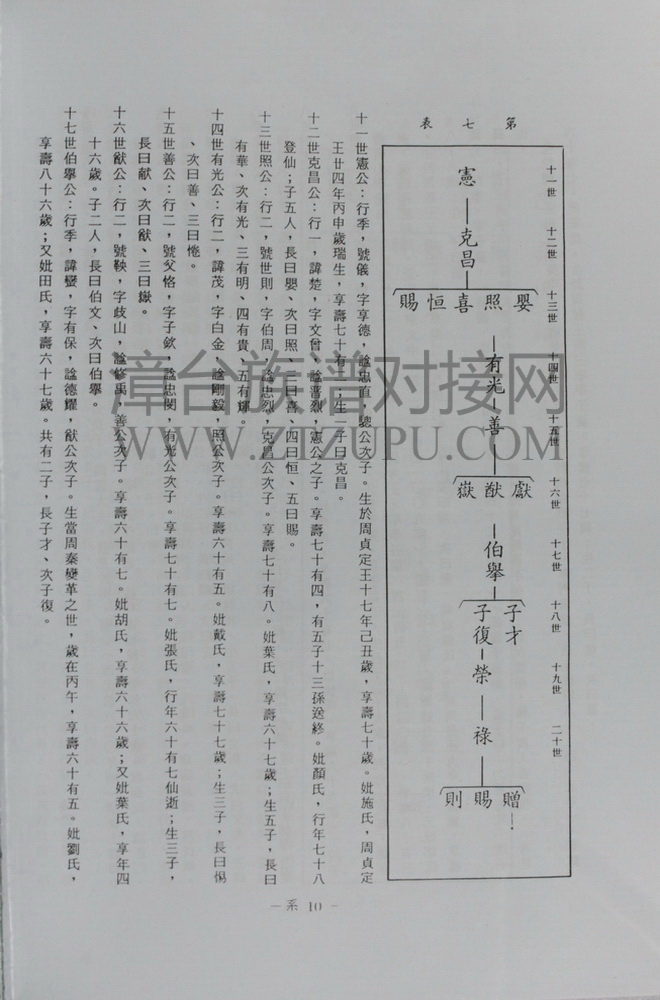 第七表
十一世
十二世
十三世
十四世
十五世
十六世
十七世
十八世
十九世
二十世
憲
克昌
嬰照喜恒賜
有光
善
獻猷嶽
伯舉
子才
子復
榮
祿
贈賜則
十一世憲公：行季，號儀，字享德，諡忠直，驄公次子。生於周貞定王十七年己丑歲，享壽七十歲。妣施氏，周貞定
王廿四年丙申歲瑞生，享壽七十有二；生一子曰克昌。
十二世克昌公：行一，諱楚，字文曾，諡普烈，憲公之子。享壽七十有四，有五子十三孫送終。妣顏氏，行年七十八
登仙；子五人，長曰嬰、次曰照、三曰喜、四曰恒、五曰賜。
十三世照公：行二，號世則，字伯周，諡忠烈，克昌公次子。享壽七十有八。妣葉氏，享壽六十七歲；生五子，長曰
有華、次有光、三有明、四有貴、五有輝。
十四世有光公：行二，諱茂，字白金，諡剛毅，照公次子。享壽六十有五。妣戴氏，享壽七十七歲；生三子，長曰惕
、次曰善、三曰惓。
十五世善公：行二，號父恪，字子欽，諡忠閔，有光公次子。享壽七十有七。妣張氏，行年六十有七仙逝；生三子，
長曰獻、次曰猷、三曰嶽。
十六世猷公：行二，號軮，字歧山，諡修禹，善公次子。享壽六十有七。妣胡氏，享壽六十六歲；又妣葉氏，享年四
十六歲。子二人，長曰伯文、次曰伯舉。
十七世伯舉公：行季，諱欒，字有保，諡德耀，猷公次子。生當周秦變革之世，歲在丙午，享壽六十有五。妣劉氏，
享壽八十六歲；又妣田氏，享壽六十七歲。共有二子，長子才、次子復。
－系 10－
漳台族谱对接网
WWW.ZTZUPU.COM